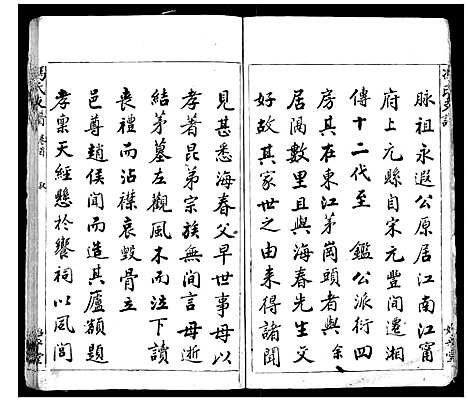 脉祖永遐公原居江南江甯
府上元縣自宋元豐間遷湘
傳十二代至 鑑公派衍四
房其在東江茅崗頭者與余
居隔數里且與海春先生文
好故其家世之由来得諸聞
見甚悉海春父早世事母以
孝著昆弟宗族無間言母逝
結茅墓左觀風木而泣下讀
喪禮而沾襟哀毀骨立
邑尊趙侯聞而造其廬額題
孝稟天經懸於饗祠以風閭